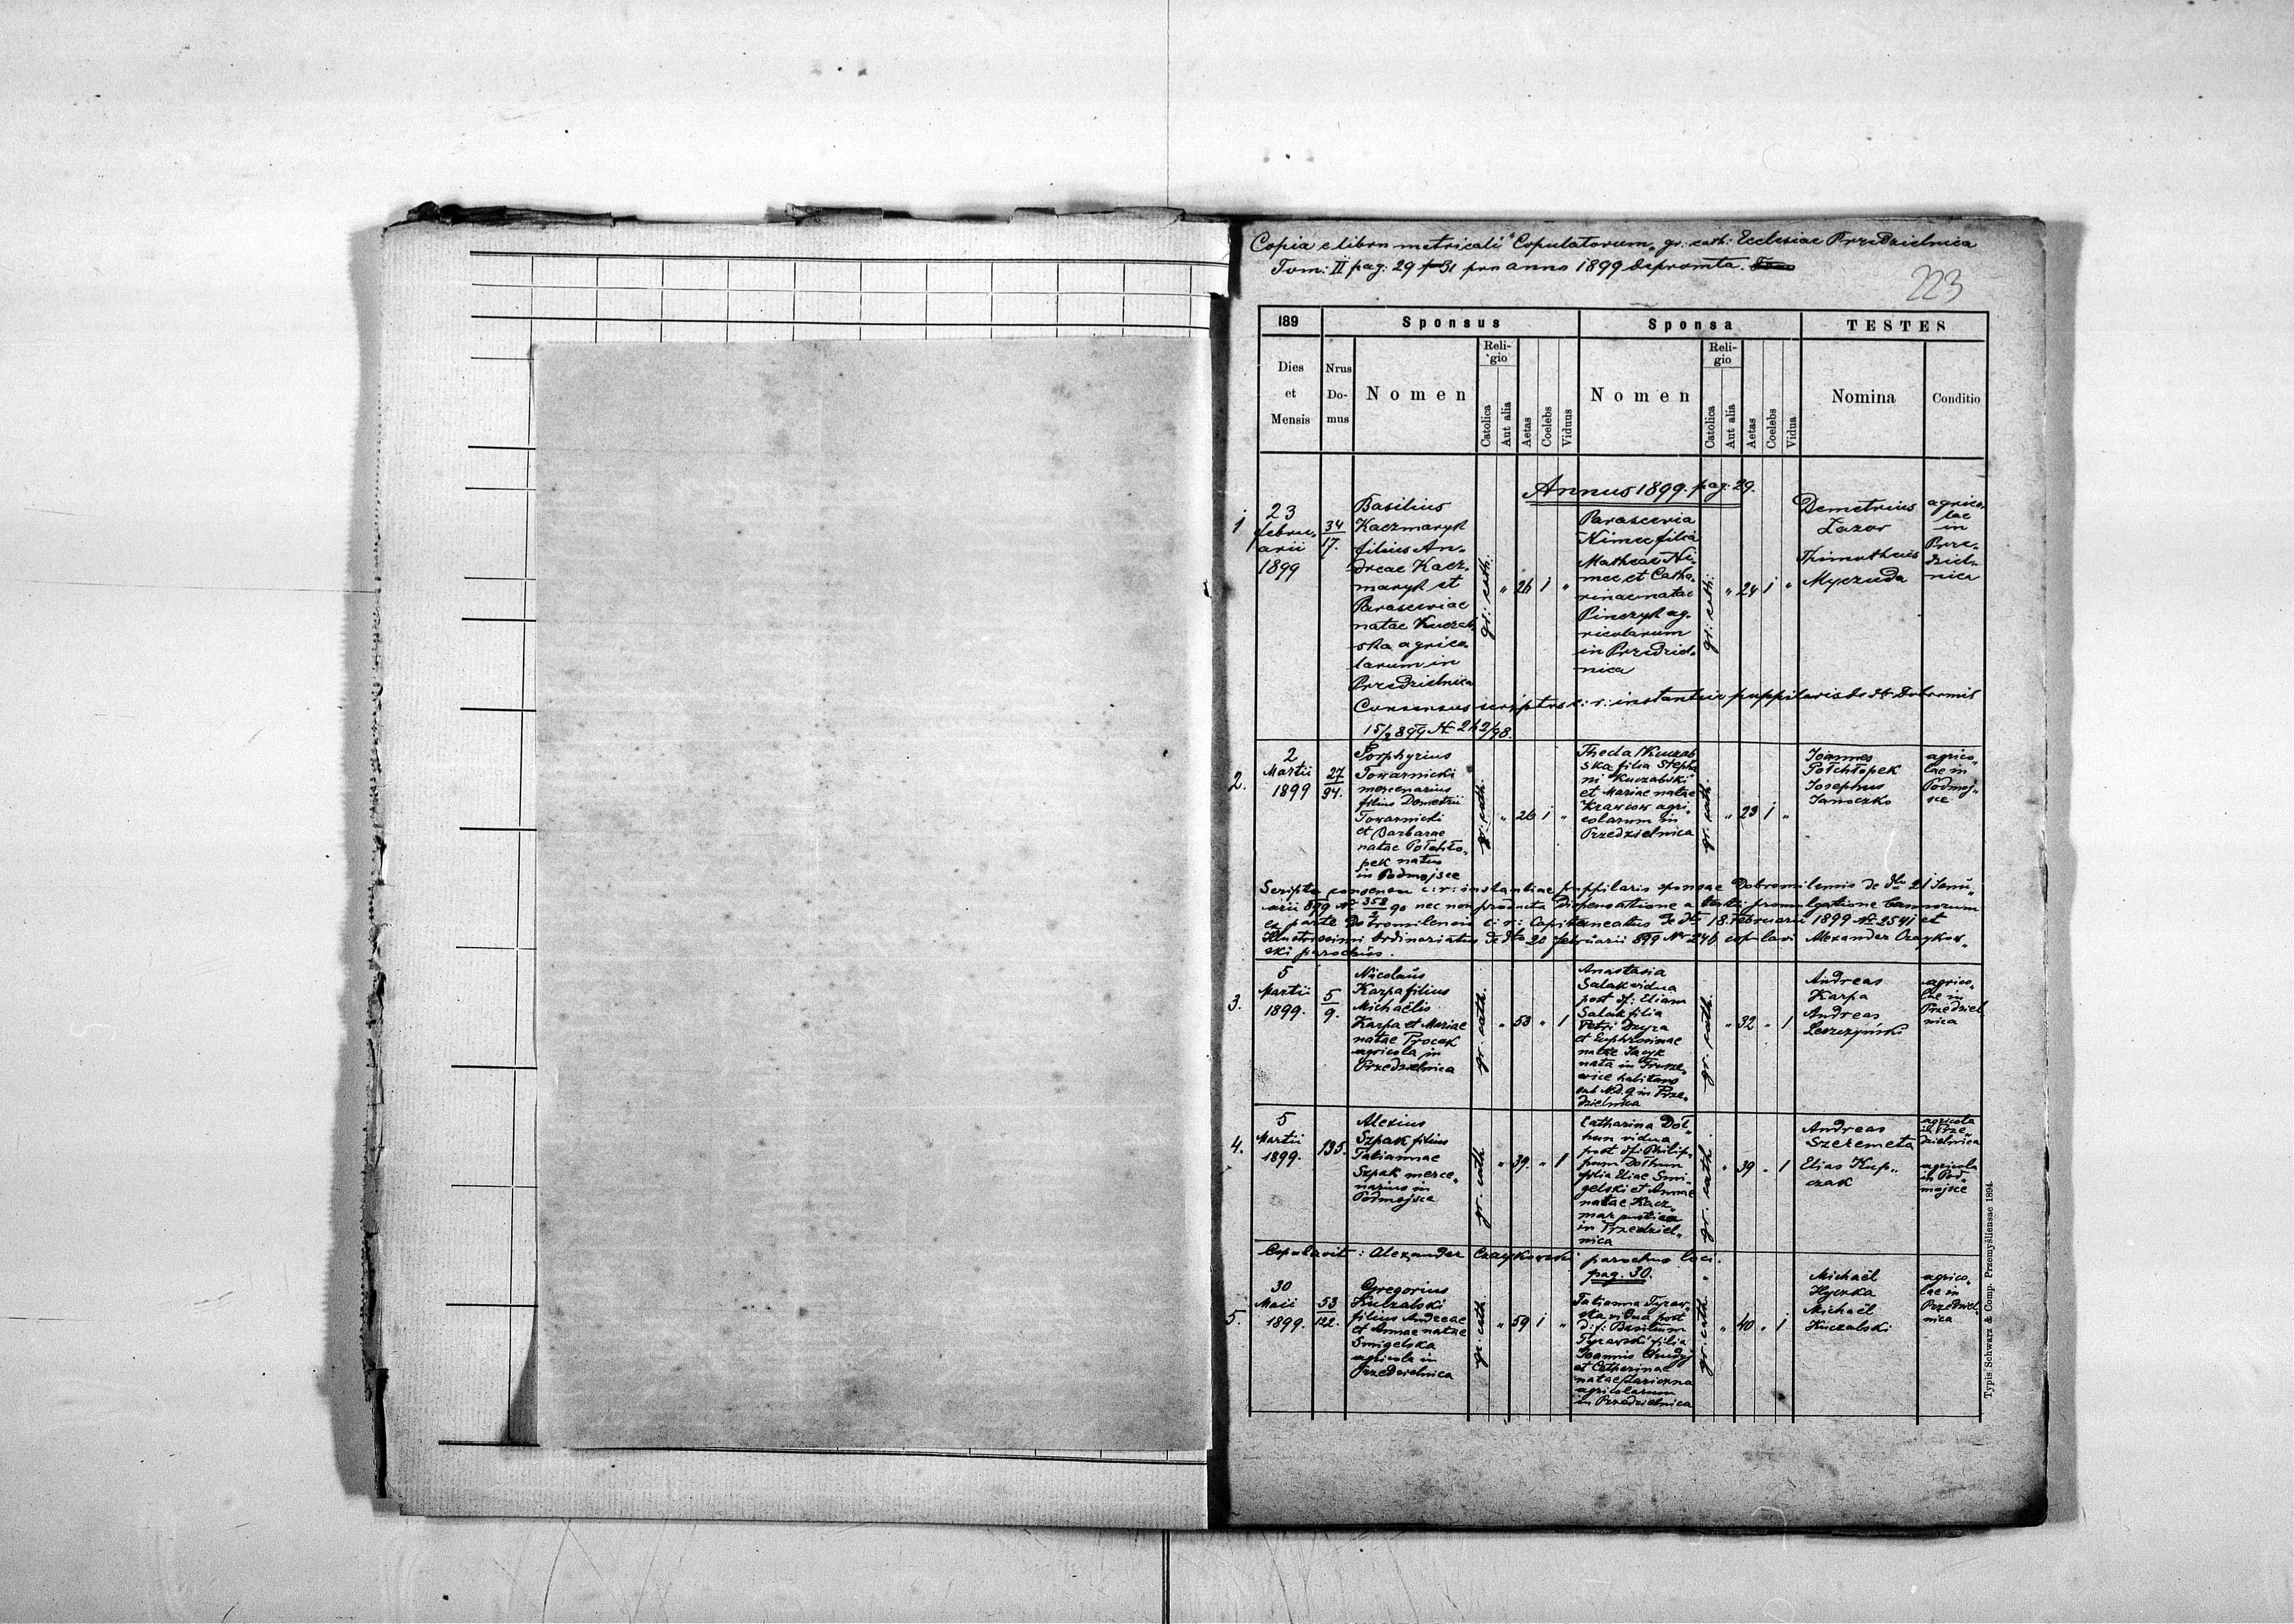 Copia e libro metricali "Copulatorum" gr: cath: Ecclesiae Przedzielnica
Tom: II pag: 29 pro anno 1899 depromta.
223
189
Sponsus
Sponsa
TESTES
Dies
et
Mensis
Nrus
Do-
mus
Nomen
Reli-
gio
Catolica
Aut alia
Aetas
Coelebs
Viduus
Nomen
Reli-
gio
Catolica
Aut alia
Aetas
Coelebs
Vidua
Nomina
Conditio
Annus 1899. pag: 29.
1
23
febru„
arii
1899
34
17.
Basilius
Kaczmaryk
filius An„
dreae Kacz„
maryk et
Parasceviae
natae Kuczab„
ska agrico„
larum in
Przedzielnica
gr: cath:
„
26
1
„
Parascevia
Nimec filia
Matheae Ni
mec et Catha„
rinae natae
Pinczyk ag„
ricolarum
in Przedziel„
nica
gr: cath:
„
24
1
„
Demetrius
Lazor
Thimotheus
Myczuda
agrico„
lae
in
Prze„
dziel„
nica
Consensus scriptus c: r: instantiae puppilaris de dto Dobromil
15/2 899 N
2.
2
Martii
1899
27
94.
Porphyrius
Towarnicki
mercenarius
filius Demetrii
Towarnicki
et Barbarae
natae Połchło„
pek natus
in Podmojsce
gr: cath:
„
26
1
„
Theda Kuczab
ska filia Stepha
ni Kuczabski
et Mariae natae
Krawcow agri„
colarum in
Przedzielnica
gr: cath.
„
23
1
„
Joannes
Połchłopek
Josephus
Janoczko
agrico„
lae in
Podmoj„
sce
Scripto consensu c: r: instantiae puppilaris sponsae Dobromilensis de dto 21 Janu„
arii 899 N 358 90 nec non producta dispensatione a promulgatione bannorum
ex parte Dobromilensis c: r: Capitaneatus de dto 18. Februarii 1899 N 2541 et
Illustrissimi Ordinariatus de dto 20 februarii 899 Nr 246 copulavi Alexander Czaykow„
ski parochus.
3.
5
Martii
1899.
5
9.
Nicolaus
Karpa filius
Michaëlis
Karpa et Mariae
natae Pyocak
agricola in
Przedzielnica
gr. cath.
„
53
„
1
Anastasia
Salak vidua
post df: Eliam
Salak filia
Petri Dzyra
et Euphrosinae
natae Jacyk
nata in Trusze„
wice habitans
sub N.d.9 in Prze„
dzielnica
gr. cath.
„
32
„
1
Andreas
Karpa
Andreas
Leszczyński
agrico„
lae in
Przedziel„
nica
4.
5
Martii
1899.
135.
Alexius
Szpak filius
Tatiannae
Szpak merce„
narius in
Podmojsce
gr. cath.
„
39.
„
1
Catharina Doł„
hun vidua
post df: Philip„
pum Dołhun
filia Eliae Smi„
gelski et Annae
natae Kacz„
mar rustica
in Przedziel„
nica
gr. cath.
„
39
„
1
Andreas
Szeremeta
Elias Kup„
czak
agricola
in Prze„
dzielnica
agricola
in Pod„
mojsce
Copulavit: Alexander Czaykowski parochus loci.
pag. 30.
5.
30
Maii
1899.
53
122.
Gregorius
Kuczabski
filius Andreae
et Annae natae
Smigelska
agricola in
Przedzielnica
gr. cath.
„
59
1
„
Tatianna Tyraw„
ska vidua post
d: f: Basilium
Tyrawski filia
Joannis
et Catharinae
natae
agricolarum
in Przedzielnica
gr. cath.
„
40
„
1
Michaël
Hyczka
Michaël
Kuczabski
agrico„
lae in
Przedziel„
nica
Typis Schwarz & Comp. Przemyśliensae 1894